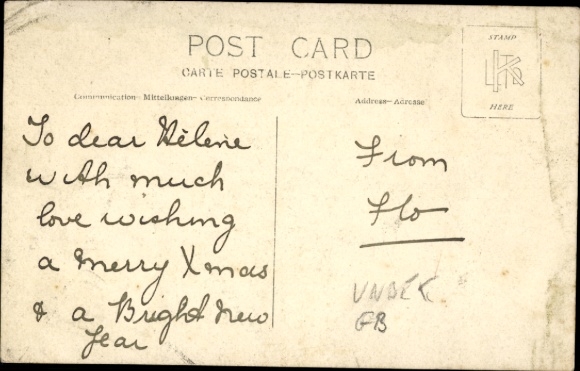 POST CARD
CARTE POSTALE—POSTKARTE
Communication—Mitteilungen—Correspondance
Address—Adresse
STAMP
HERE
To dear Hélène
with much
love wishing
a Merry Xmas
& a Bright New
Year
From
Flo
UNDER
GB